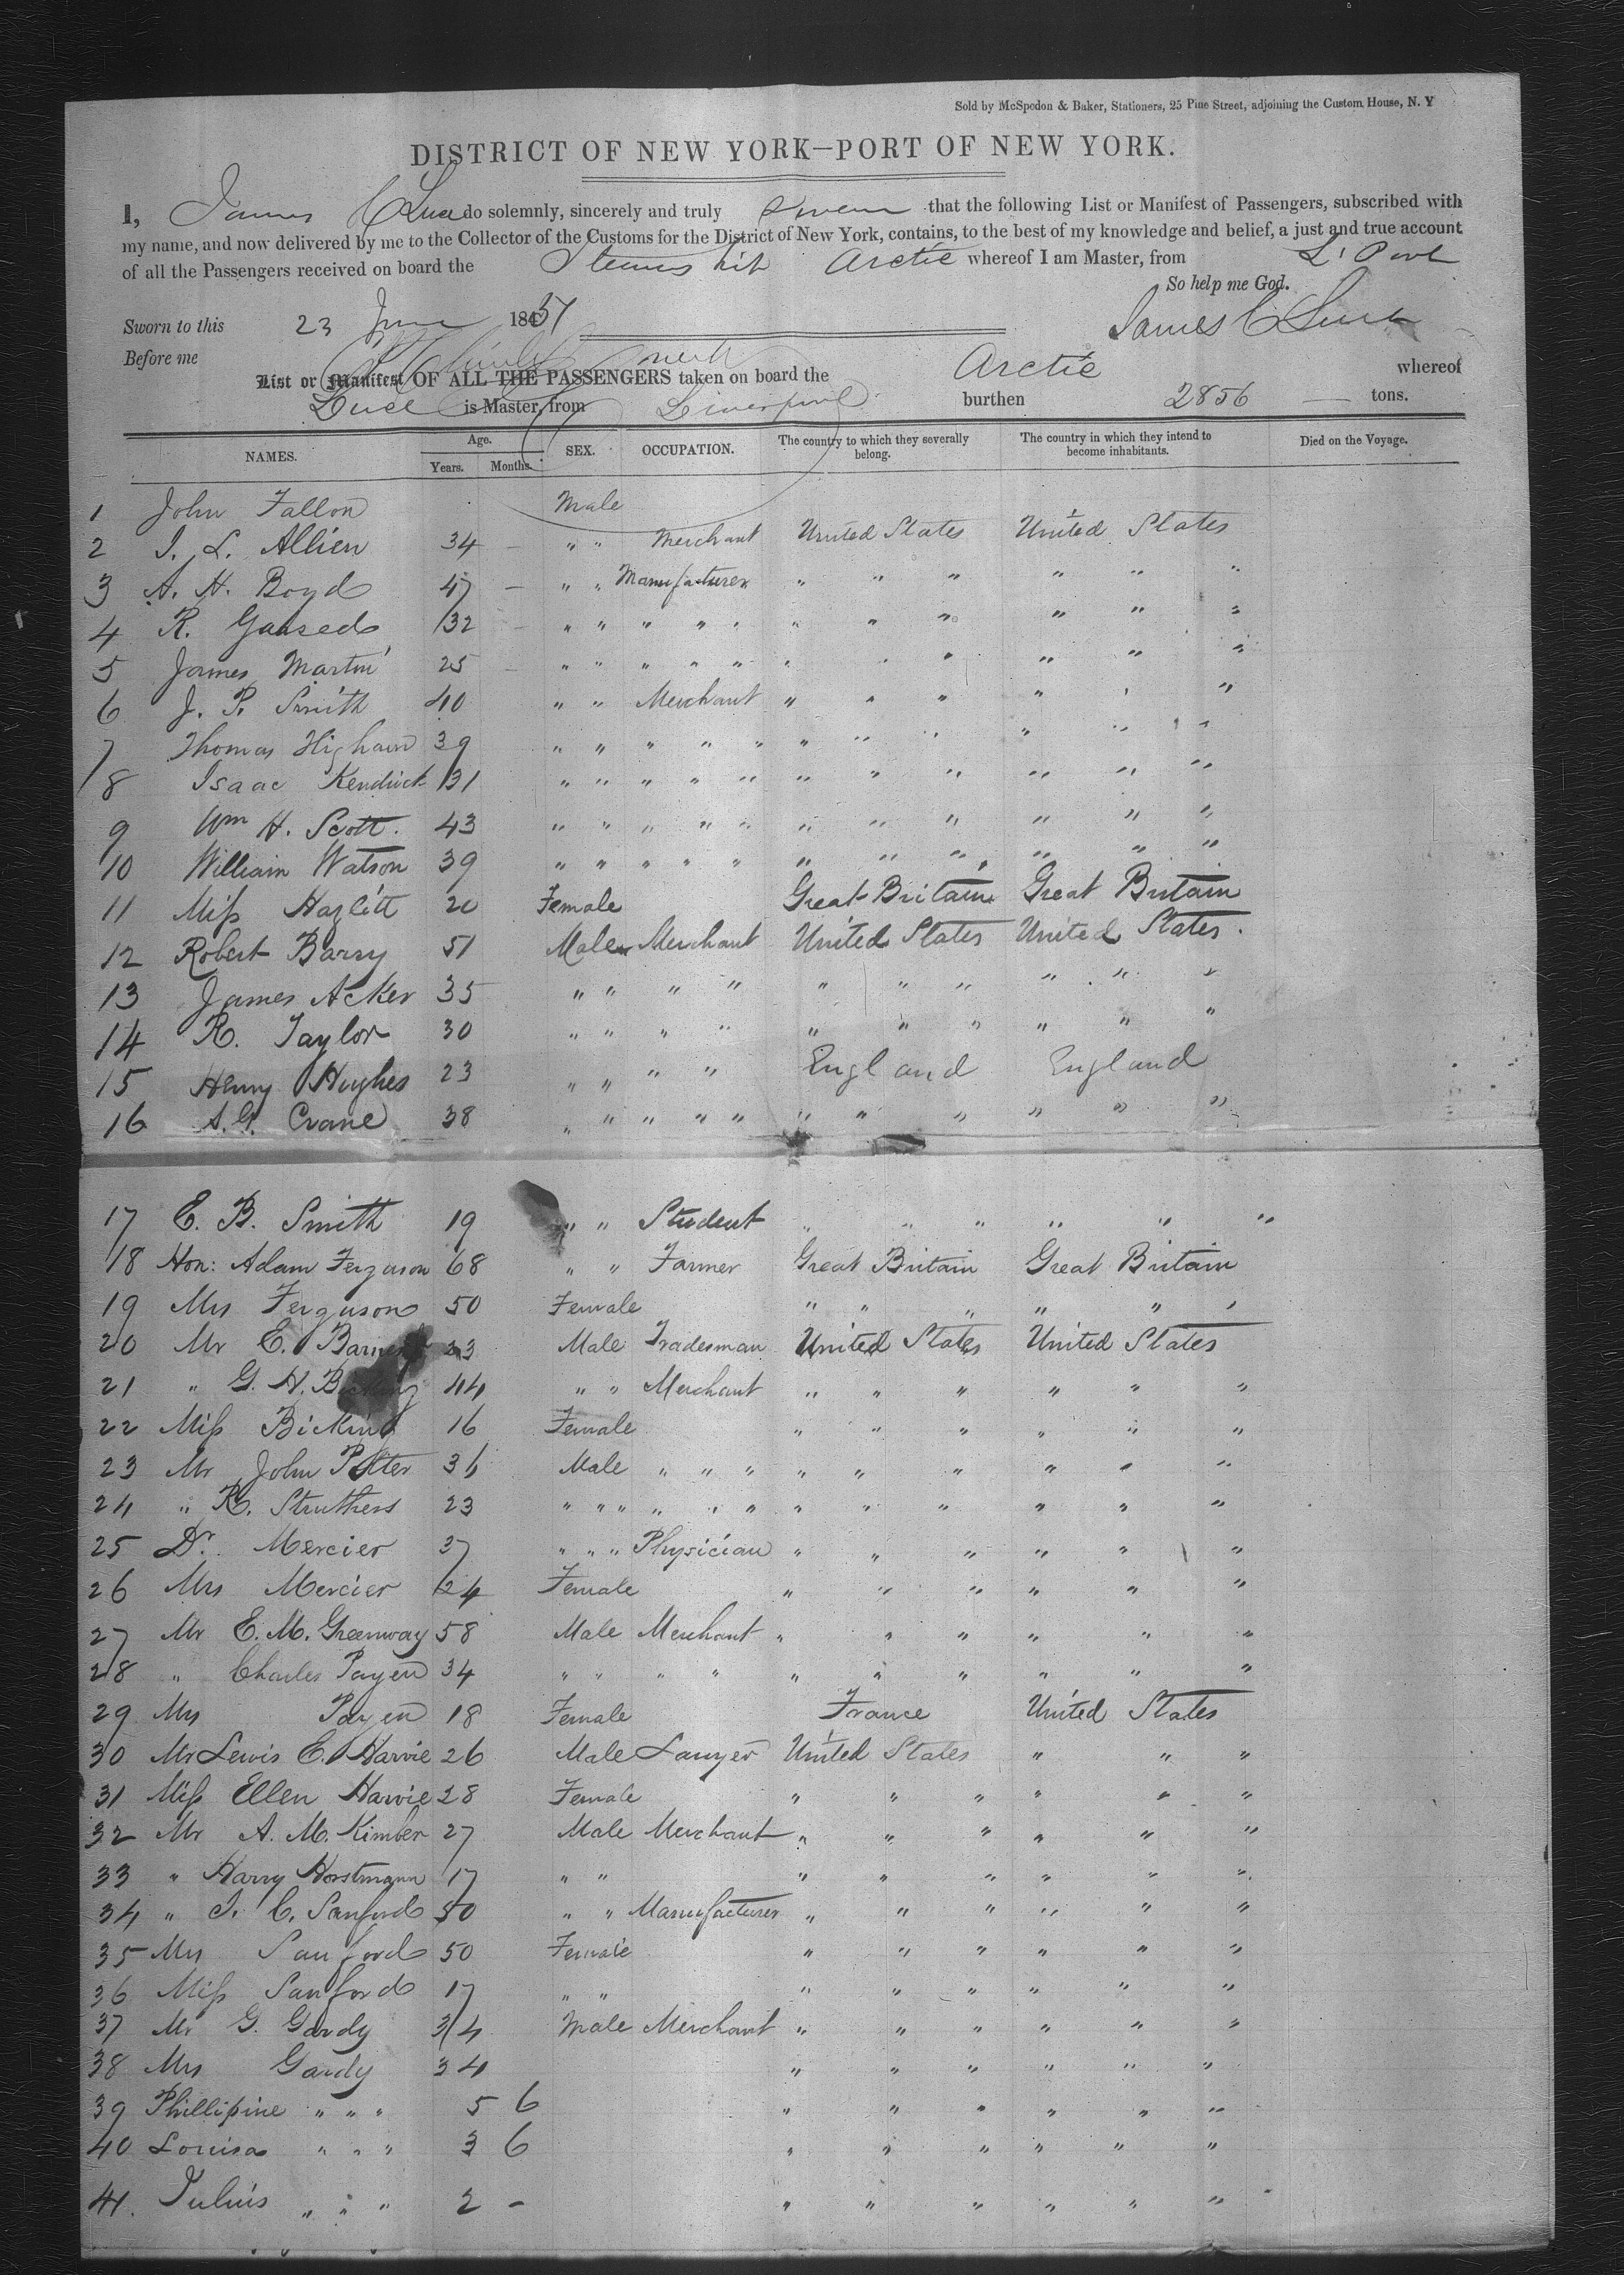 Sold by McSpedon & Baker, Stationers, 25 Pine Street, adjoining the Custom House, N. Y
DISTRICT OF NEW YORK—PORT OF NEW YORK.
I, James C Luce do solemnly, sincerely and truly swear that the following List or Manifest of Passengers, subscribed with
my name, and now delivered by me to the Collector of the Customs for the District of New York, contains, to the best of my knowledge and belief, a just and true account
of all the Passengers received on board the Steam Ship Arctic whereof I am Master, from L'Pool
So help me God.
Sworn to this 23 June 1851 James C Luce
Before me
List or Manifest OF ALL THE PASSENGERS taken on board the Arctic whereof
Luce is Master, from Liverpool burthen 2856 — tons.
NAMES. Age. Years. Months. SEX. OCCUPATION. The country to which they severally belong. The country in which they intend to become inhabitants. Died on the Voyage.
1 John Fallon Male
2 J. L. Allien 34 — " " Merchant United States United States
3 A. H. Boyd 47 — " " Manufacturer " " " " " "
4 R. 32 — " " " " " " " " " " "
5 James Martin 25 — " " " " " " " " " " "
6 J. P. Smith 40 " " Merchant " " " " " "
7 Thomas Higham 39 " " " " " " " " " " "
8 Isaac Kendrick 31 " " " " " " " " " " "
9 Wm H. Scott. 43 " " " " " " " " " " "
10 William Watson 39 " " " " " " " " " " "
11 Miss Hazlitt 20 Female Great Britain Great Britain
12 Robert Barry 51 Male Merchant United States United States.
13 James Acker 35 " " " " " " " " " "
14 R. Taylor 30 " " " " " " " " " "
15 Henry Hughes 23 " " " " England England
16 A. G. Crane 38 " " " " " " " " " " "
17 E. B. Smith 19 " " Student " " " " " "
18 Hon: Adam Ferguson 68 " " Farmer Great Britain Great Britain
19 Mrs Ferguson 50 Female " " " " " "
20 Mr E. 23 Male Tradesman United States United States
21 " G. H. Bicking 44 " " Merchant " " " " " "
22 Miss Bicking 16 Female " " " " " "
23 Mr John Potter 36 Male " " " " " " " " "
24 " R. Struthers 23 " " " " " " " " " " " "
25 Dr. Mercier 37 " " " Physician " " " " " "
26 Mrs Mercier 24 Female " " " " " "
27 Mr E. M. Greenway 58 Male Merchant " " " " " "
28 " Charles Payen 34 " " " " " " " " " "
29 Mrs Payen 18 Female France United States
30 Mr Lewis E. Harvie 26 Male Lawyer United States " " "
31 Miss Ellen Harvie 28 Female " " " " " "
32 Mr A. M. Kimber 27 Male Merchant " " " " " "
33 " Harry Horstmann 17 " " " " " " " "
34 " J. C. Sanford 50 " " Manufacturer " " " " " "
35 Mrs Sanford 50 Female " " " " " "
36 Miss Sanford 17 " " " " " " " "
37 Mr G. Gardy 34 Male Merchant " " " " " "
38 Mrs Gardy 34 " " " " " "
39 Phillipine " " " 5 6 " " " " " "
40 Louisa " " " 3 6 " " " " " "
41. Julius " " " 2 – " " " " " "